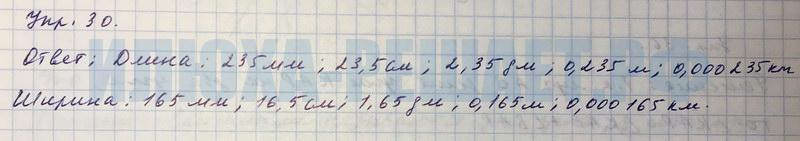 Упр. 30.
Ответ: Длина: 235мм; 23,5см; 2,35дм; 0,235м; 0,000235км
Ширина: 165мм; 16,5см; 1,65дм; 0,165м; 0,000165км.